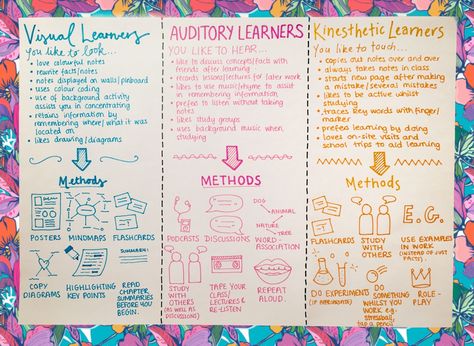 Visual Learners
You like to look...
• love colourful notes
• rewrite facts/notes
• notes displayed on walls/pinboard
• uses colour coding
• use of background activity
assists you in concentrating
• retains information by
remembering where/what it was
located on
• likes drawing/diagrams
Methods
POSTERS
MINDMAPS
FLASHCARDS
SUMMARY:
COPY
DIAGRAMS
HIGHLIGHTING
KEY POINTS
READ
CHAPTER
SUMMARIES
BEFORE YOU
BEGIN.
AUDITORY LEARNERS
YOU LIKE TO HEAR...
• like to discuss concepts/facts with
friends after learning
• records lessons/lectures for later work
• likes to use music/rhyme to assist
in remembering information
• prefers to listen without taking
notes
• likes study groups
• uses background music when
studying
METHODS
PODCASTS
DISCUSSIONS
DOG
ANIMAL
NATURE
TREE
WORD-
ASSOCIATION
STUDY
WITH
OTHERS
(AS WELL AS
DISCUSSIONS)
TAPE YOUR
CLASS/
LECTURES &
RE-LISTEN
REPEAT
ALOUD
Kinesthetic Learners
You like to touch...
• copies out notes over and over
• always takes notes in class
• starts new page after making
a mistake/several mistakes
• likes to be active whilst
studying
• traces key words with finger/
marker
• prefers learning by doing
• loves on-site visits and
school trips to aid learning
Methods
FLASHCARDS
STUDY
WITH
OTHERS
E.G.
USE EXAMPLES
IN WORK
(INSTEAD OF JUST
FACTS).
DO EXPERIMENTS
DO
SOMETHING
WHILST YOU
WORK e.g.
stressball,
tap a pencil
ROLE-
PLAY